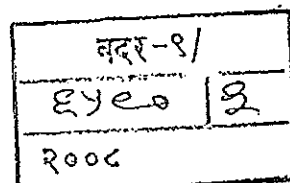 बदर-९/
६५९० | ३
२००८